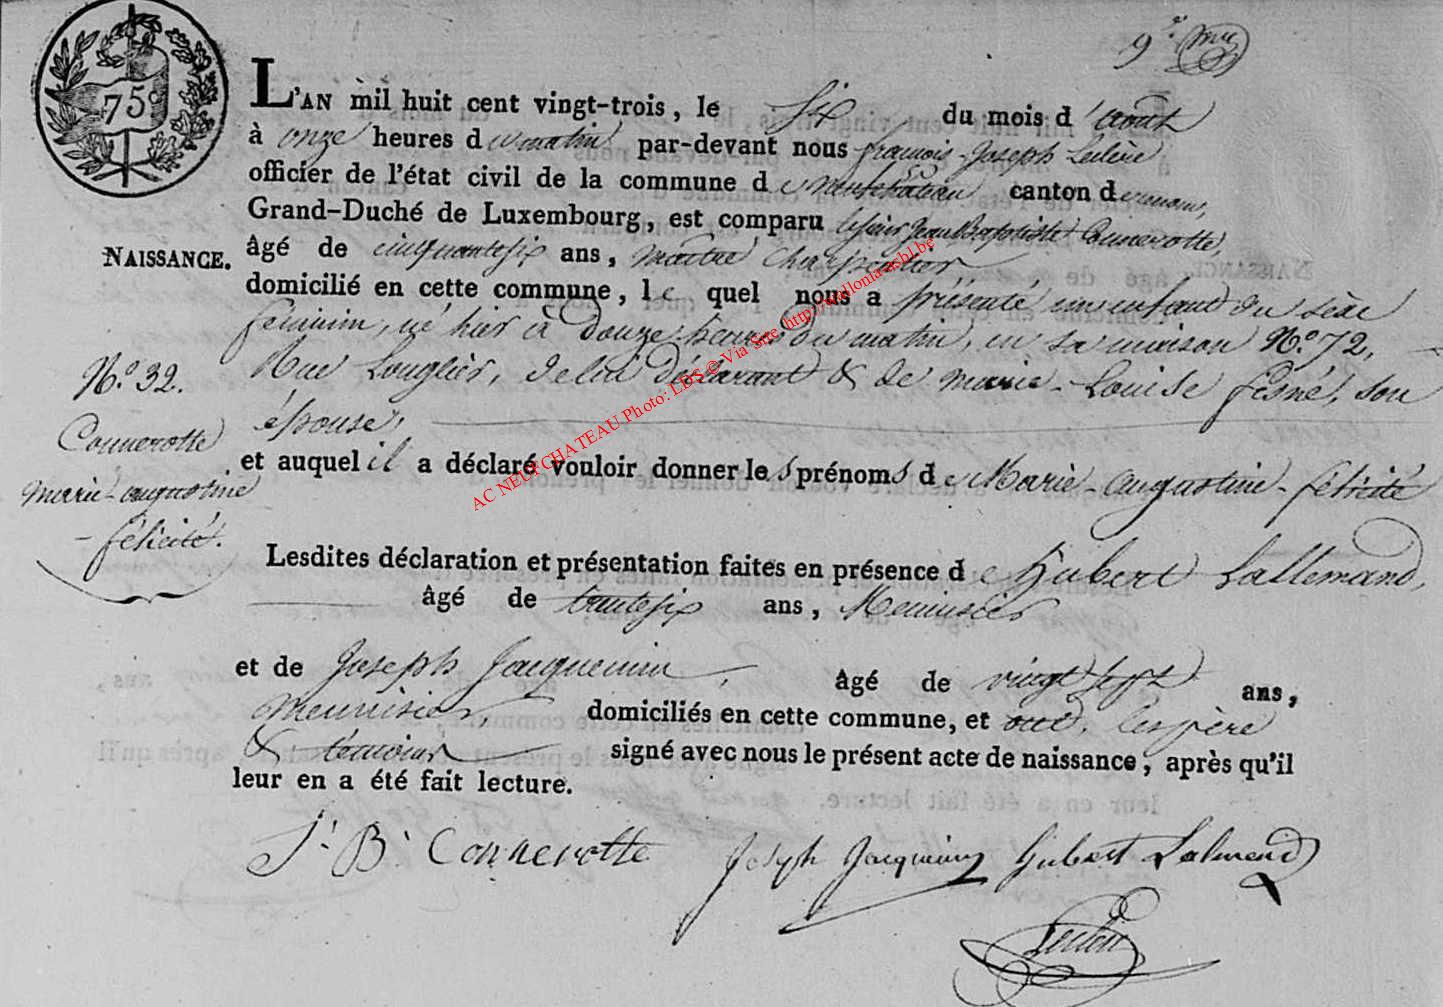 9.e
75c
L'AN mil huit cent vingt-trois, le Six du mois d'août
à onze heures du matin par-devant nous françois-Joseph Leclère
officier de l'état civil de la commune de neufchateau canton de
Grand-Duché de Luxembourg, est comparu le sieur Jean Baptiste Connerotte,
NAISSANCE.
âgé de cinquantesix ans, maitre Charpentier
domicilié en cette commune, le quel nous a présenté un enfant du sèxe
féminin, né hier à douze heures du matin, en sa maison N.o 72,
Rue Longlier, de lui déclarant & de marie-Louise fesné, son
épouse,
et auquel il a déclaré vouloir donner les prénoms de Marie-augustine-félicité
N.o 32.
Connerotte
marie-augustine
-félicité.
Lesdites déclaration et présentation faites en présence de hubert Lallemand,
âgé de trentesix ans, Menuisier
et de Joseph Jacquemin, âgé de vingt sept ans,
menuisier, domiciliés en cette commune, et ont, les père
& témoins signé avec nous le présent acte de naissance, après qu'il
leur en a été fait lecture.
J. B. Connerotte Joseph Jacquemin hubert Lalmend
Leclère
AC NEUFCHATEAU Photo: LDS © Via Site http://wallonia-asbl.be